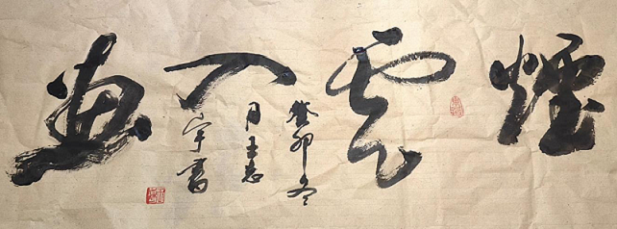 煙雲入畫
癸卯冬
月志
宇書